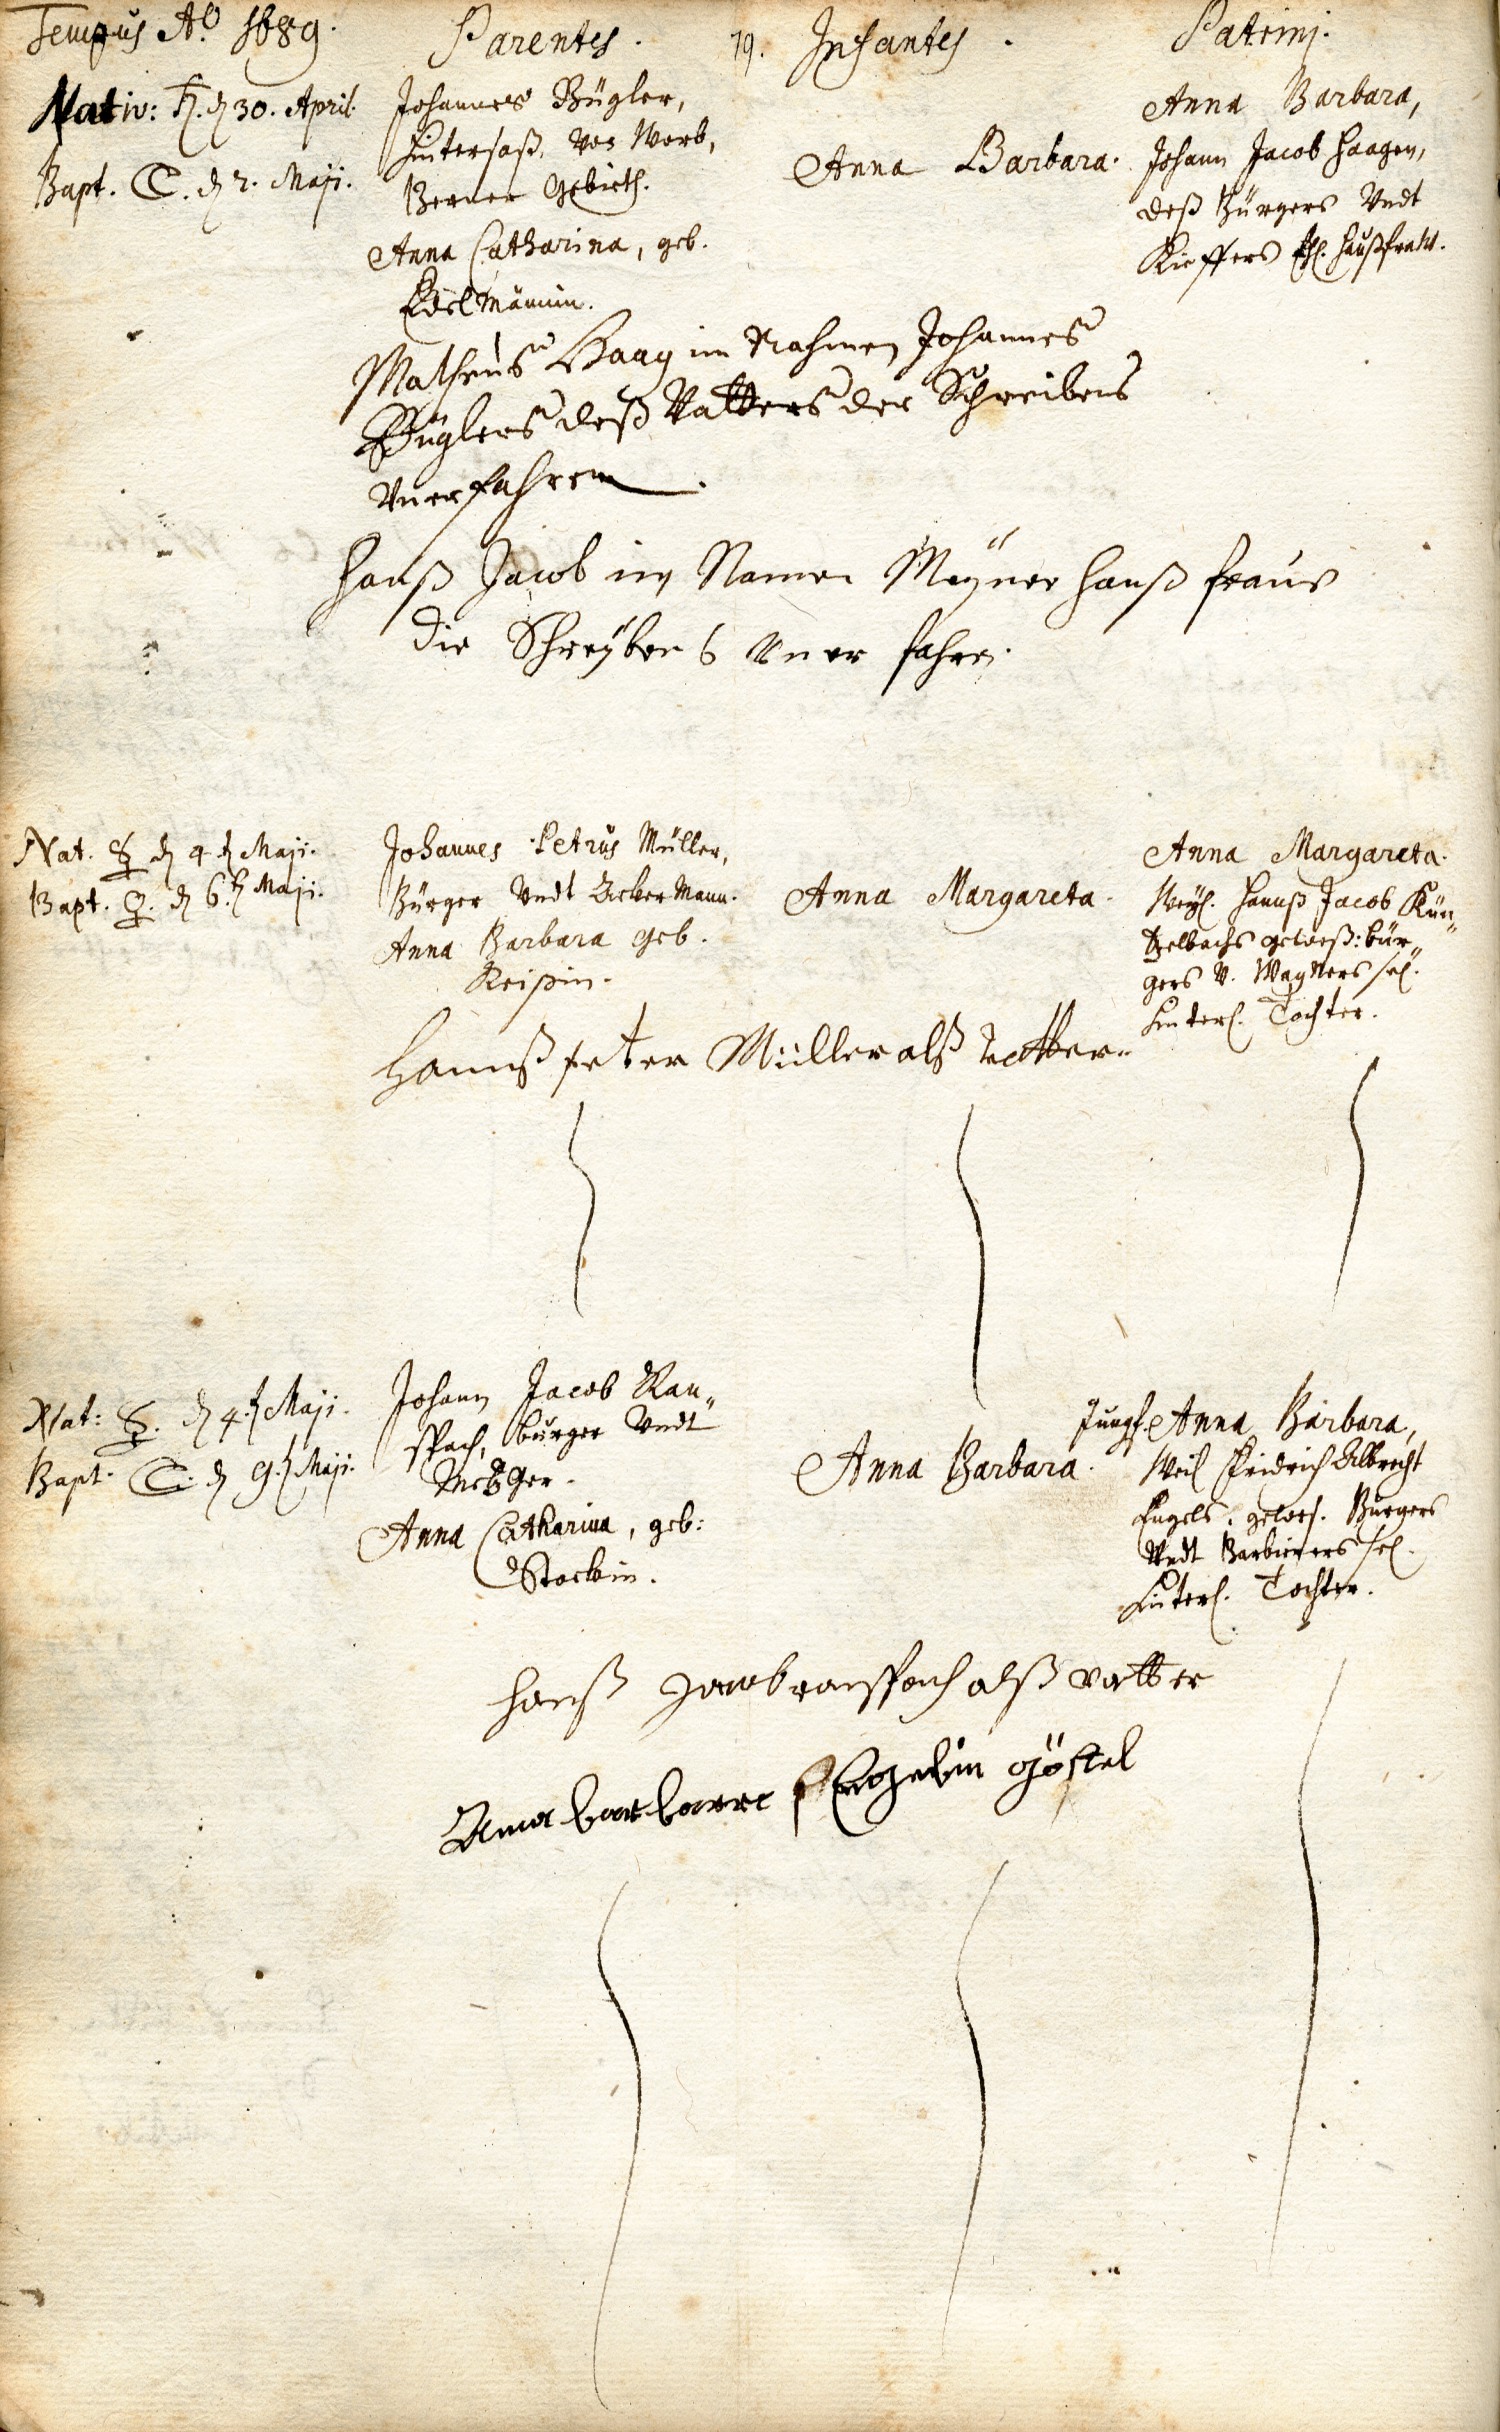 Tempus Aº 1689. Parentes. 19. Infantes. Patrinj.
Nativ: ♄. d 30. April.
Bapt. ☾. d 2. Maji.
Johannes Bügler,
Hintersaß, von Worb,
Berner Gebieth.
Anna Catharina, geb.
Edelmännin.
Anna Barbara.
Anna Barbara,
Johann Jacob Haagen,
deß Bürgers Vndt
Kieffers Ehl. Haußfraw.
Matheus Haag im Nahmen Johannes
Büglers deß Vatters der Schreibens
Vnerfahren.
Hanß Jacob im Namen Meyner Hauß fraus
die Schreybens Vner fahren.
Nat. ☿ d 4.t Maji.
Bapt. ♀. d 6.t Maji.
Johannes Petrus Müller,
Bürger Vndt Ackermann.
Anna Barbara geb.
Reißin.
Anna Margareta.
Anna Margareta.
Weyl. Hannß Jacob Kün„
tzelbachs geweß: bür„
gers V. Wagners sel.
Hinterl. Tochter.
Hannß peter Müller alß vatter
Nat: ☿. d 4.t Maji.
Bapt. ☾. d 9.t Maji.
Johann Jacob Ran„
spach, burger Vndt
Metzger.
Anna Catharina, geb:
Stockin.
Anna Barbara.
Jungf. Anna Barbara,
Weil Fridrich Albrecht
Engels, gewes. Burgers
Vndt Barbierers sel.
Hinterl. Tochter.
Hanß Jacob ranspach alß vatter
Anna barbara Engelin göttel